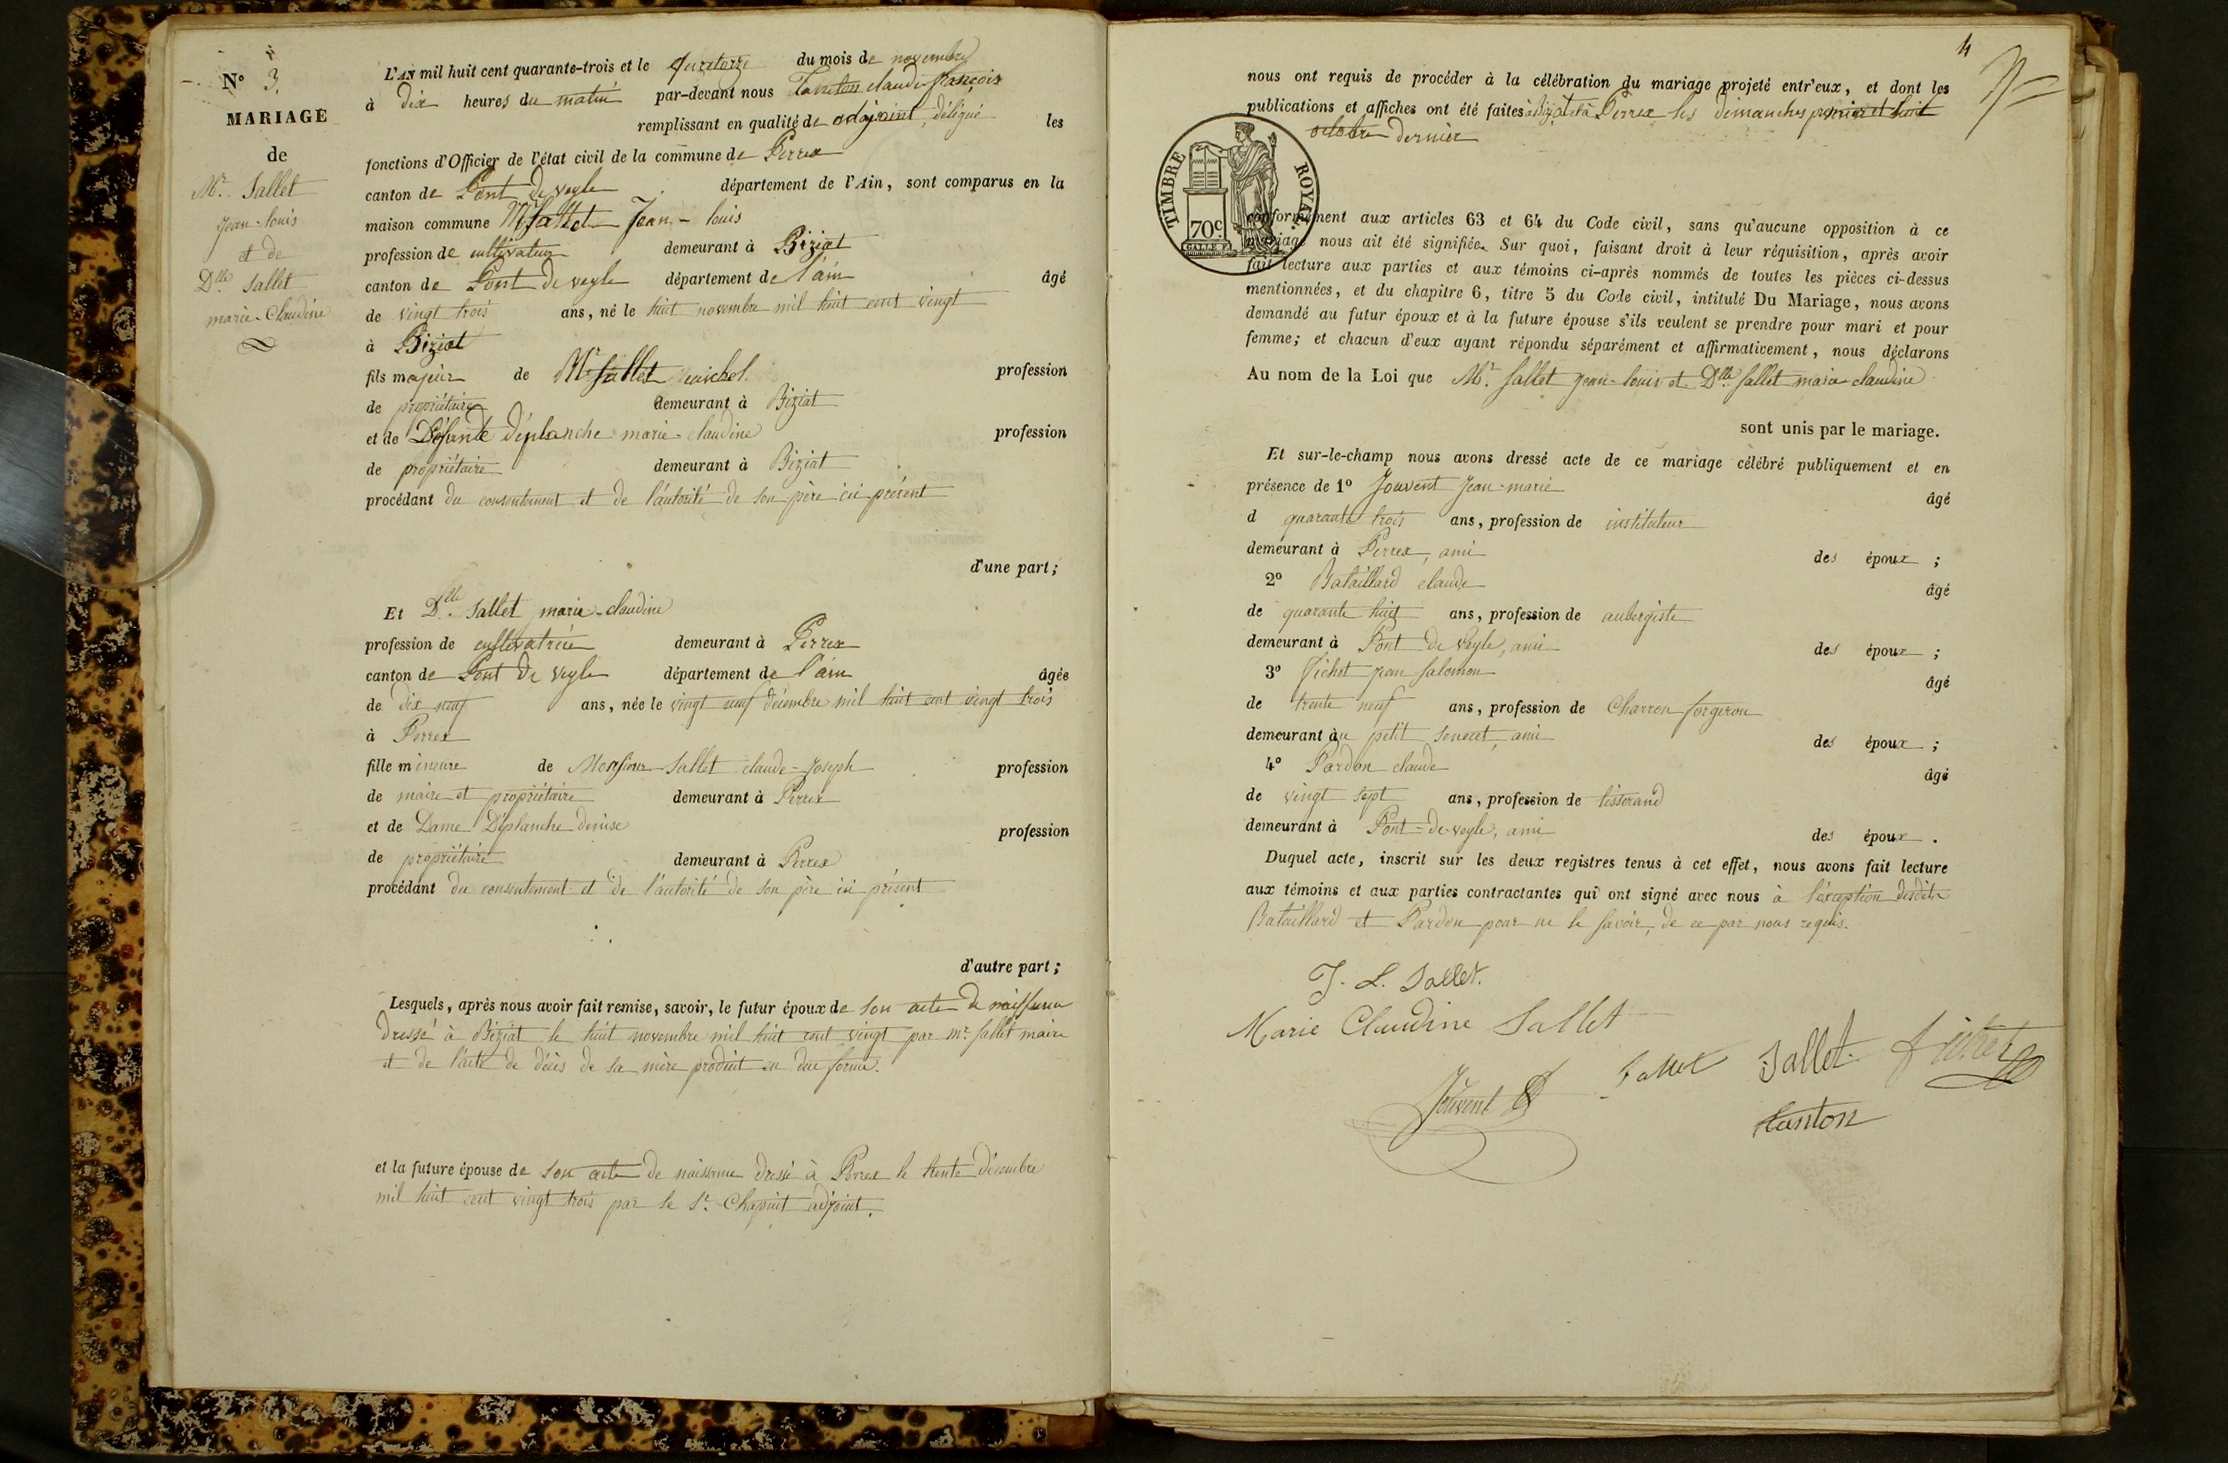 N° 3.
MARIAGE
de
Mr. Sallet
Jean-louis
et de
Dlle Sallet
marie-Claudine
L'AN mil huit cent quarante-trois et le quatorze du mois de novembre
à dix heures du matin par-devant nous claude françois
remplissant en qualité de adjoint, délégué les
fonctions d'Officier de l'état civil de la commune de Perrex
canton de Pont de veyle département de l'Ain, sont comparus en la
maison commune Mr Sallet Jean-louis
profession de cultivateur demeurant à Biziat
canton de Pont de veyle département de l'ain âgé
de vingt trois ans, né le huit novembre mil huit cent vingt
à Biziat
fils majeur de Mr. Sallet michel profession
de propriétaire demeurant à Biziat
et de Défunte Déplanche marie-claudine profession
de propriétaire demeurant à Biziat
procédant du consentement et de l'autorité de son père ici présent
d'une part;
Et Dlle Sallet marie-claudine
profession de cultivatrice demeurant à Perrex
canton de Pont de Veyle département de l'ain âgée
de dix neuf ans, née le vingt neuf décembre mil huit cent vingt trois
à Perrex
fille mineure de Monsieur Sallet claude-Joseph profession
de maire et propriétaire demeurant à Perrex
et de Dame Déplanche denise profession
de propriétaire demeurant à Perrex
procédant du consentement et de l'autorité de son père ici présent
d'autre part;
Lesquels, après nous avoir fait remise, savoir, le futur époux de son acte de naissance
dressé à Biziat le huit novembre mil huit cent vingt par mr. Sallet maire
et de l'acte de décès de sa mère produit en due forme.
et la future épouse de son acte de naissance dressé à Perrex le trente décembre
mil huit cent vingt trois par le Sr. Chapuit adjoint.
4
nous ont requis de procéder à la célébration du mariage projeté entr'eux, et dont les
publications et affiches ont été faites à Biziat et à Perrex les dimanches premier et huit
octobre dernier
TIMBRE ROYAL.
70c.
conformément aux articles 63 et 64 du Code civil, sans qu'aucune opposition à ce
mariage nous ait été signifiée. Sur quoi, faisant droit à leur réquisition, après avoir
fait lecture aux parties et aux témoins ci-après nommés de toutes les pièces ci-dessus
mentionnées, et du chapitre 6, titre 5 du Code civil, intitulé Du Mariage, nous avons
demandé au futur époux et à la future épouse s'ils veulent se prendre pour mari et pour
femme; et chacun d'eux ayant répondu séparément et affirmativement, nous déclarons
Au nom de la Loi que Mr. Sallet Jean-louis et Dlle Sallet marie-claudine
sont unis par le mariage.
Et sur-le-champ nous avons dressé acte de ce mariage célébré publiquement et en
présence de 1° Jouvent Jean-marie âgé
d quarante trois ans, profession de instituteur
demeurant à Perrex, ami des époux ;
2° Bataillard claude âgé
de quarante huit ans, profession de aubergiste
demeurant à Pont de Veyle, ami des époux ;
3° Fichet Jean Salomon âgé
de trente neuf ans, profession de Charron forgeron
demeurant au petit ami des époux ;
4° Pardon claude âgé
de vingt sept ans, profession de tisserand
demeurant à Pont-de-veyle, ami des époux .
Duquel acte, inscrit sur les deux registres tenus à cet effet, nous avons fait lecture
aux témoins et aux parties contractantes qui ont signé avec nous à l'exception desdits
Bataillard et Pardon pour ne le savoir, de ce par nous requis.
J. L. Sallet.
Marie Claudine Sallet
Jouvent Sallet Sallet Fichet